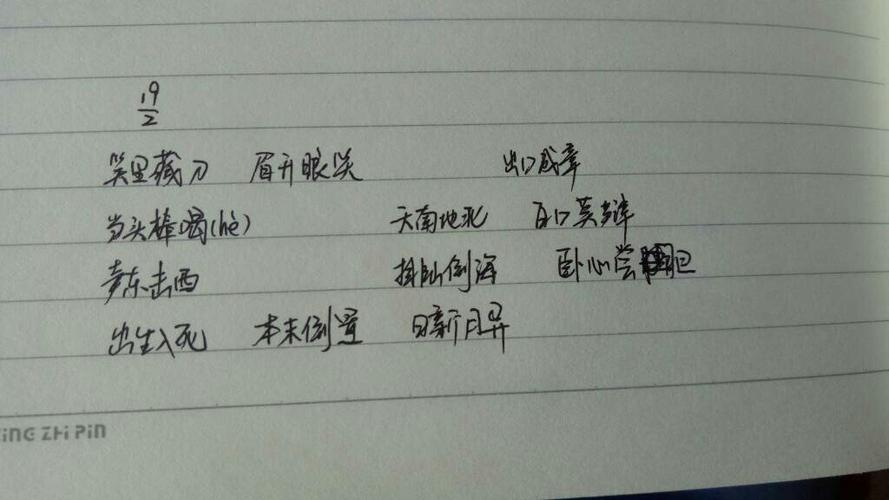 19/2
笑里藏刀 眉开眼笑 出口成章
当头棒喝(hè) 天南地北 百口莫辩
声东击西 排山倒海 卧心尝胆
出生入死 本末倒置 日新月异
ING ZHI PIN